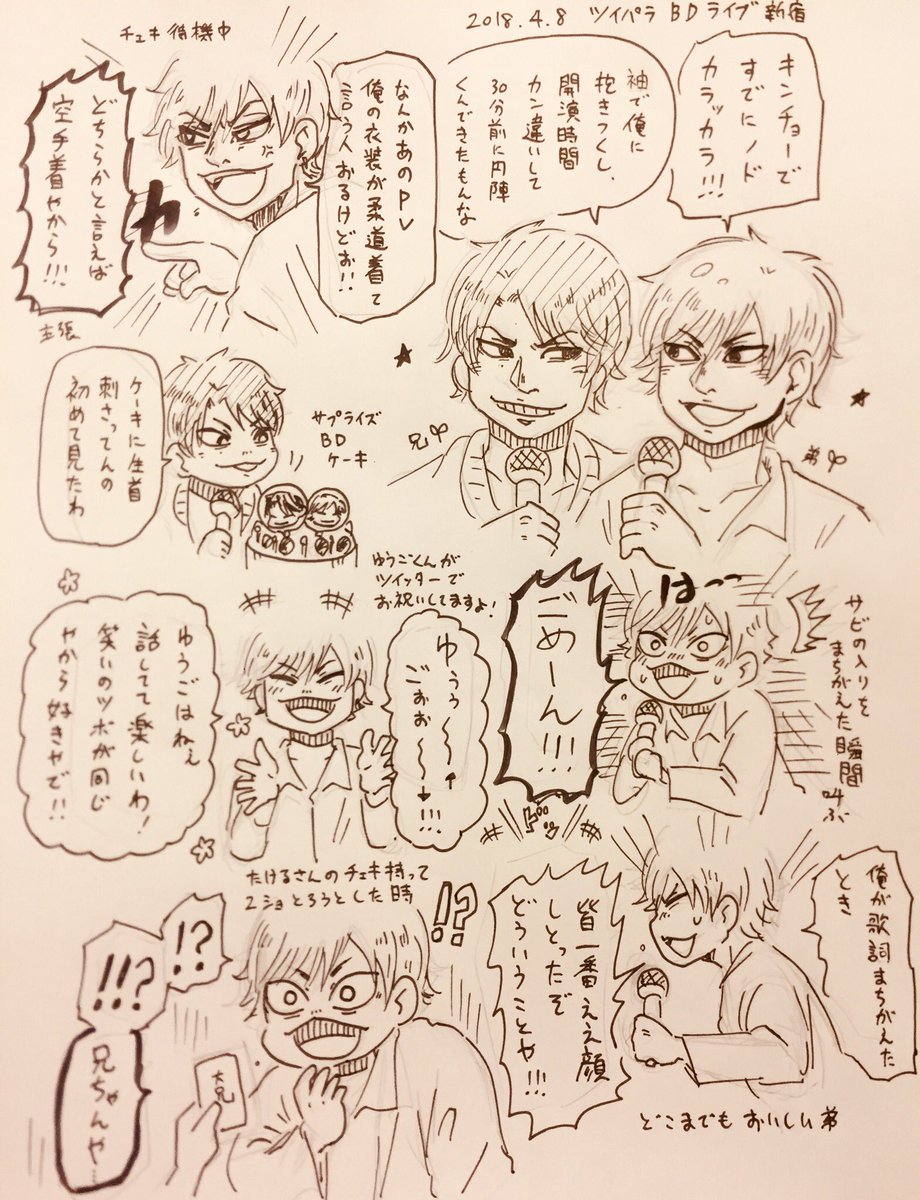 2018.4.8 ツイパラ BDライブ新宿
キンチョーで
すでにノド
カラッカラ!!!
袖で俺に
抱きつくし、
開演時間
カン違いして
30分前に円陣
くんできたもんな
兄
弟
チェキ待機中
なんかあのPV
俺の衣装が柔道着て
言う人おるけどぉ!!
どちらかと言えば
空手着やから!!!
主張
サプライズ
BD
ケーキ
ケーキに生首
刺さってんの
初めて見たわ
サビの入りを
まちがえた瞬間
叫ぶ
はーっ
ごめーん!!!
ドッ
ゆうごくんが
ツイッターで
お祝いしてますよ!
ゆうぅ〜
ごぉぉ〜!!!
ゆうごはねぇ
話してて楽しいわ!
笑いのツボが同じ
やから好きやで!!
俺が歌詞まちがえた
とき
皆一番ええ顔
しとったぞ
どういうことや!!!
どこまでもおいしい弟
たけるさんのチェキ持って
2ショとろうとした時
!?
!?
!!?
兄ちゃんや…